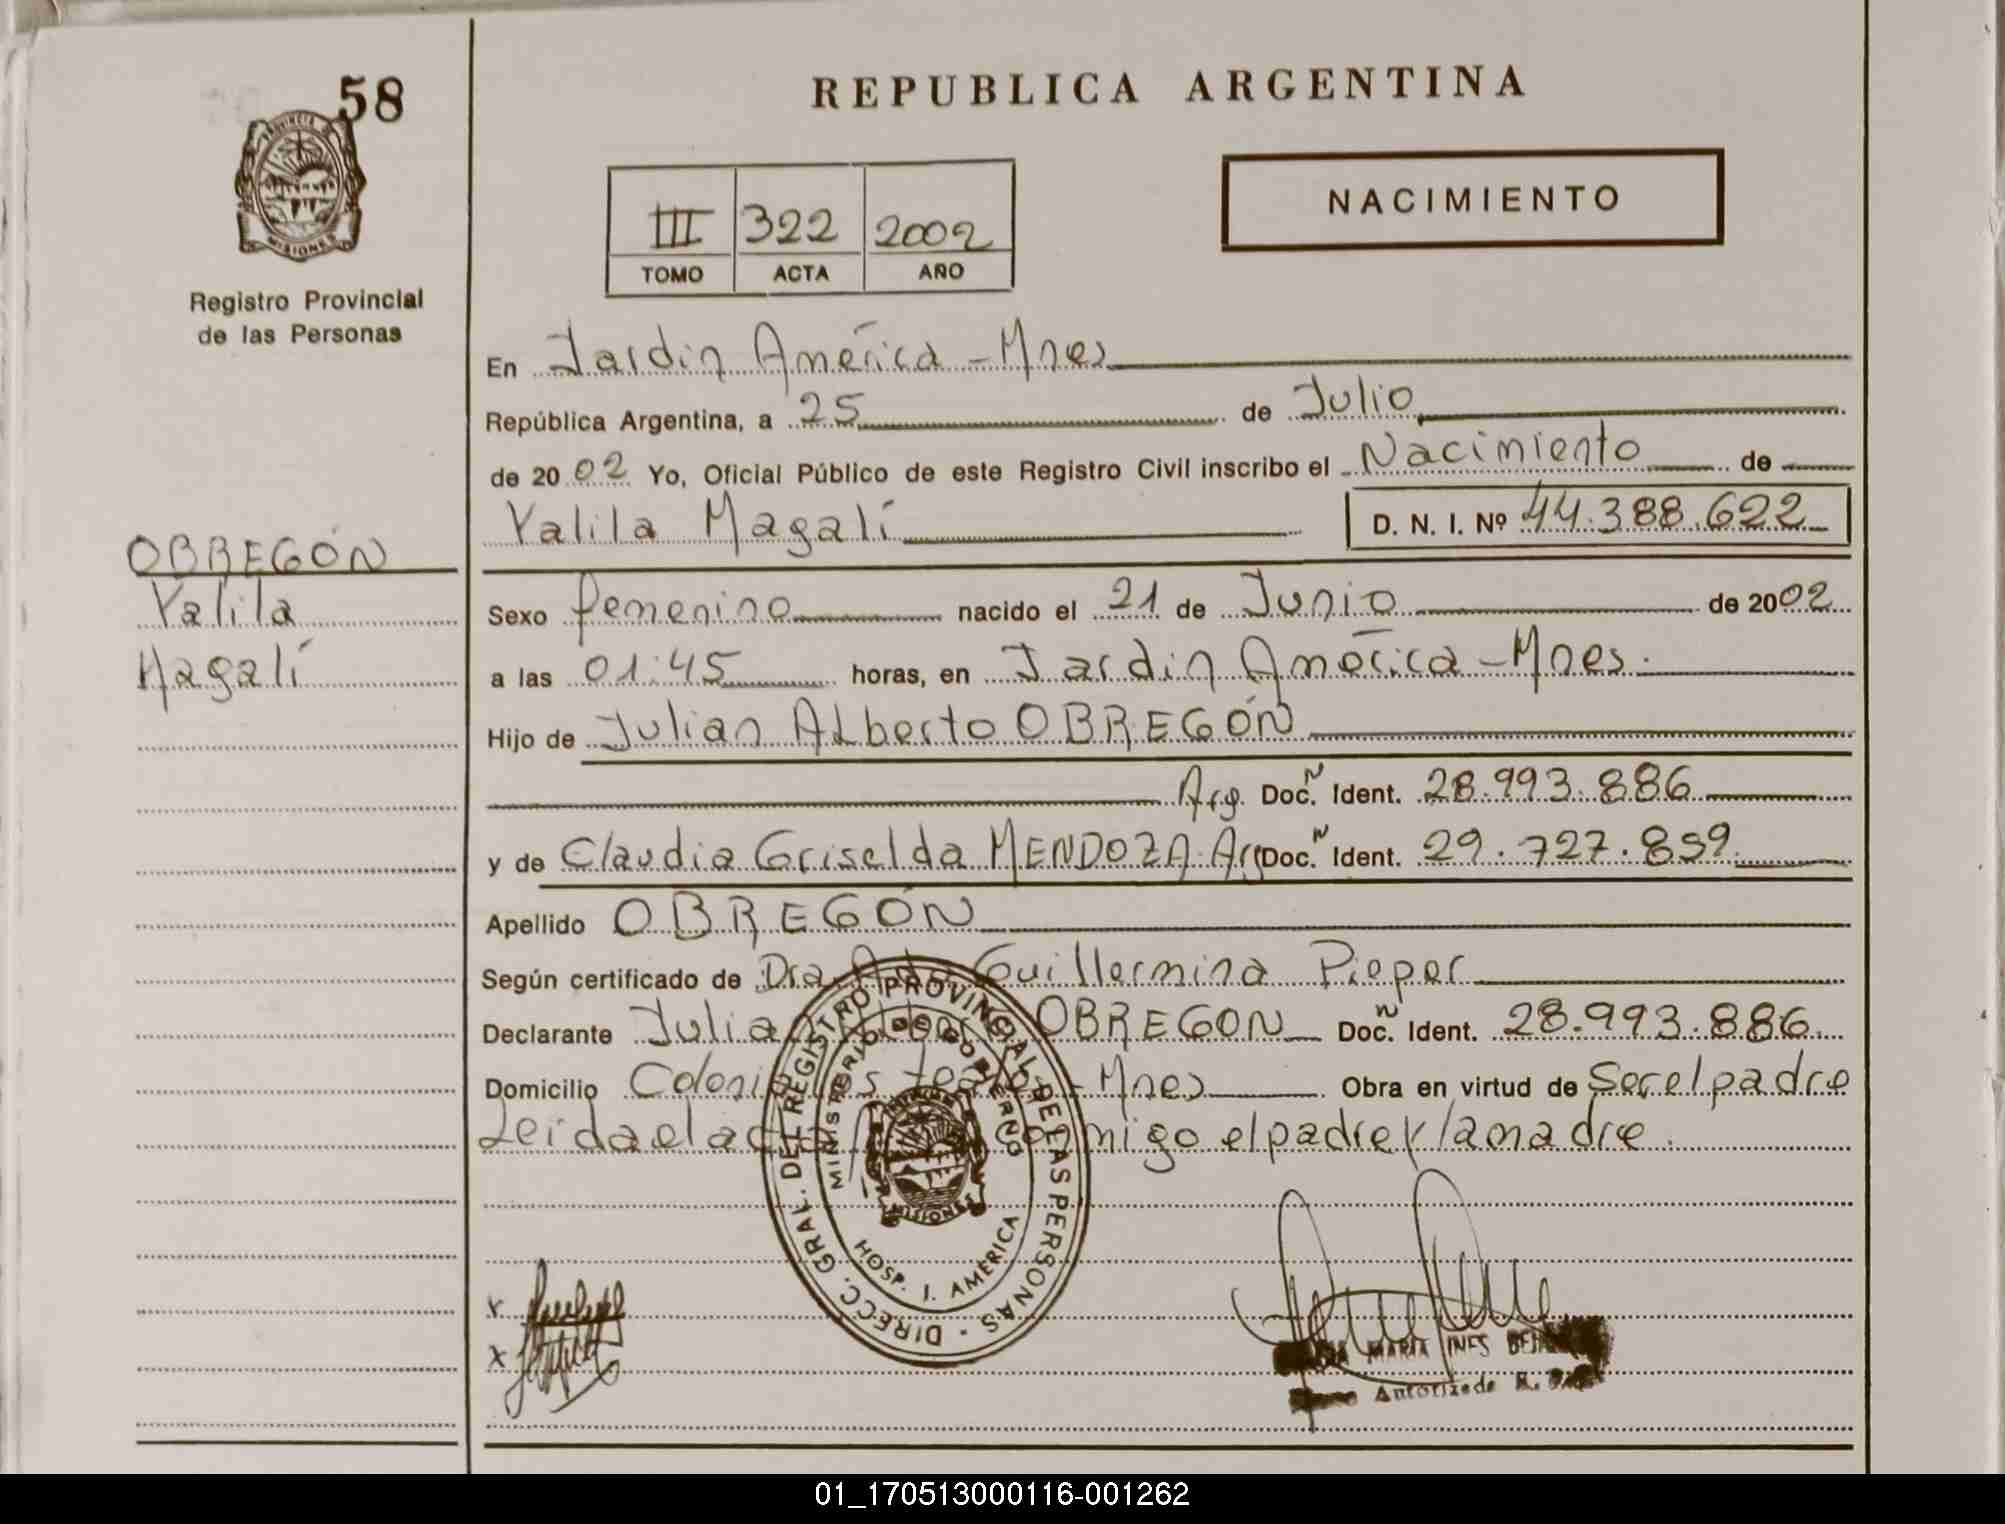 58
REPUBLICA ARGENTINA
NACIMIENTO
III 322 2002
TOMO ACTA AÑO
PROVINCIA DE
MISIONES
Registro Provincial
de las Personas
En Jardin América - Mnes
República Argentina, a 25 de Julio
de 2002 Yo, Oficial Público de este Registro Civil inscribo el Nacimiento de
Yalila Magalí D. N. I. Nº 44.388.622
OBREGÓN
Yalila
Magalí
Sexo femenino nacido el 21 de Junio de 2002
a las 01:45 horas, en Jardin América - Mnes.
Hijo de Julian Alberto OBREGÓN
Arg. Doc. N Ident. 28.993.886
y de Claudia Griselda MENDOZA. Arg Doc. N Ident. 29.727.859
Apellido OBREGÓN
Según certificado de Dra. Guillermina Pieper
Declarante Julian Alberto OBREGON Doc. N Ident. 28.993.886
Domicilio Colonia - Mnes Obra en virtud de Ser el padre
Leida el acta conmigo el padre y la madre.
DIRECC. GRAL. DEL REGISTRO PROVINCIAL DE LAS PERSONAS -
MINISTERIO DE GOBIERNO
MISIONES
HOSP. J. AMERICA
x
x
MARIA INES
Autorizada R.
01_170513000116-001262